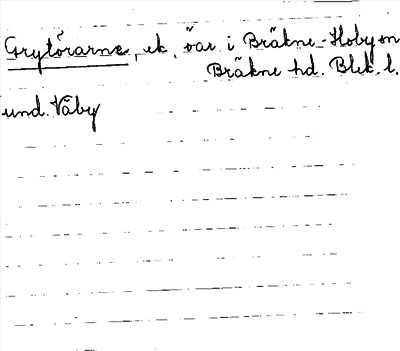 Grytörarne, ek. öar i Bräkne-Hoby sn
Bräkne hd. Blek. l.
und. Väby